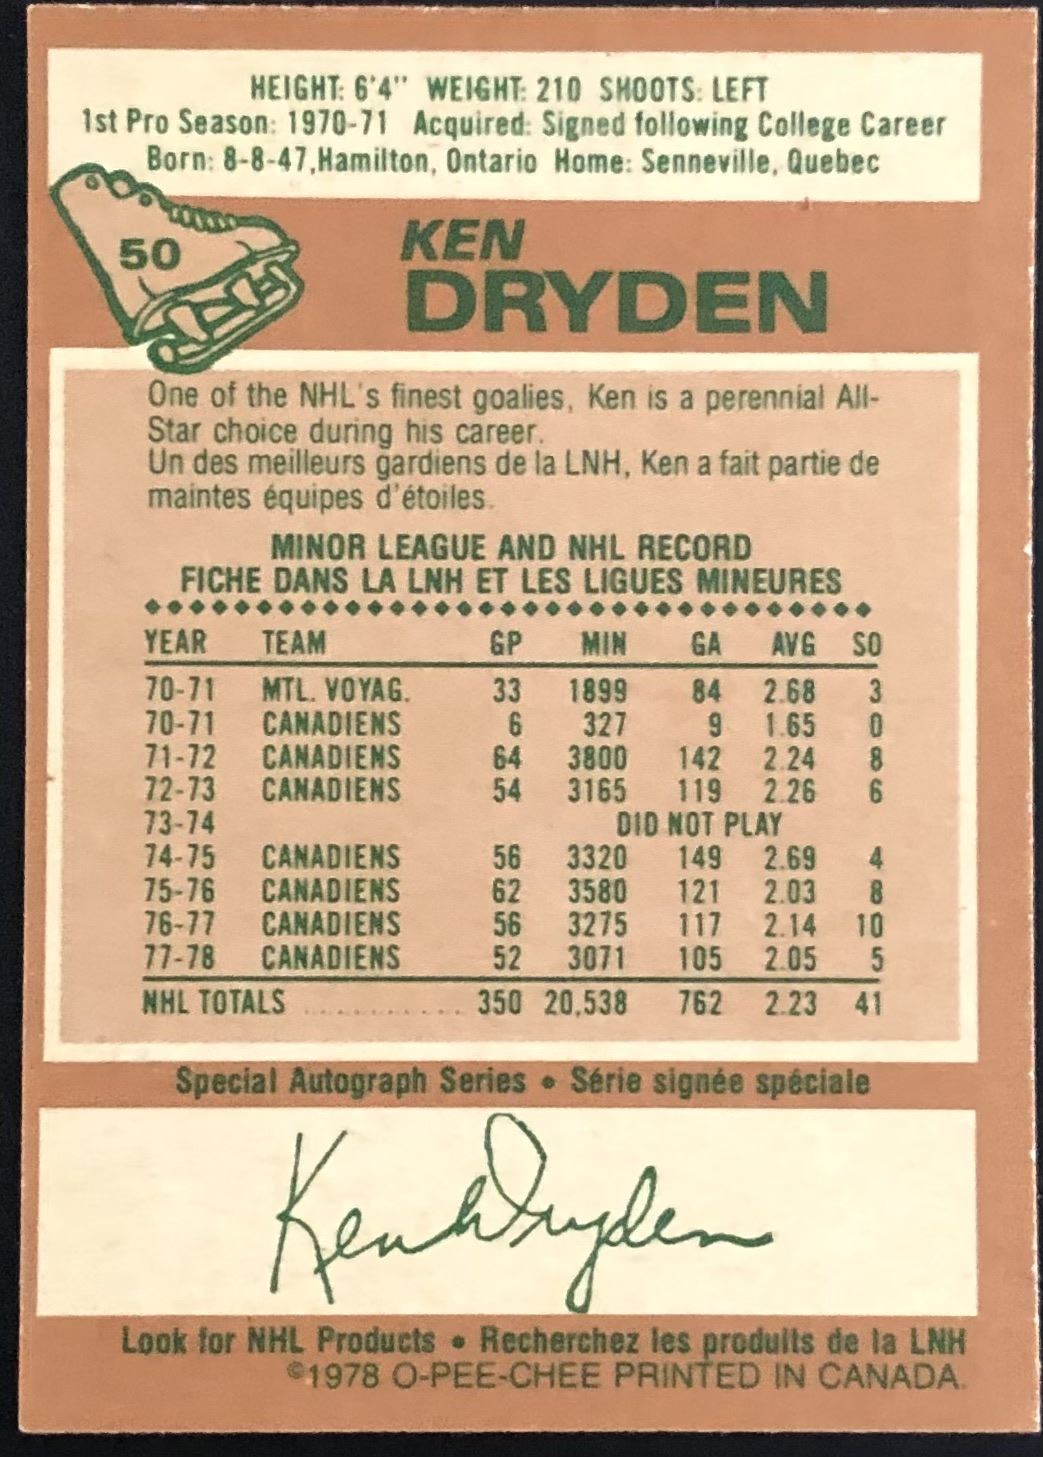 HEIGHT: 6'4" WEIGHT: 210 SHOOTS: LEFT
1st Pro Season: 1970-71 Acquired: Signed following College Career
Born: 8-8-47, Hamilton, Ontario Home: Senneville, Quebec
50
KEN
DRYDEN
One of the NHL's finest goalies, Ken is a perennial All-
Star choice during his career.
Un des meilleurs gardiens de la LNH, Ken a fait partie de
maintes équipes d'étoiles.
MINOR LEAGUE AND NHL RECORD
FICHE DANS LA LNH ET LES LIGUES MINEURES
YEAR TEAM GP MIN GA AVG SO
70-71 MTL. VOYAG. 33 1899 84 2.68 3
70-71 CANADIENS 6 327 9 1.65 0
71-72 CANADIENS 64 3800 142 2.24 8
72-73 CANADIENS 54 3165 119 2.26 6
73-74 DID NOT PLAY
74-75 CANADIENS 56 3320 149 2.69 4
75-76 CANADIENS 62 3580 121 2.03 8
76-77 CANADIENS 56 3275 117 2.14 10
77-78 CANADIENS 52 3071 105 2.05 5
NHL TOTALS ............ 350 20,538 762 2.23 41
Special Autograph Series • Série signée spéciale
Ken Dryden
Look for NHL Products • Recherchez les produits de la LNH
©1978 O-PEE-CHEE PRINTED IN CANADA.